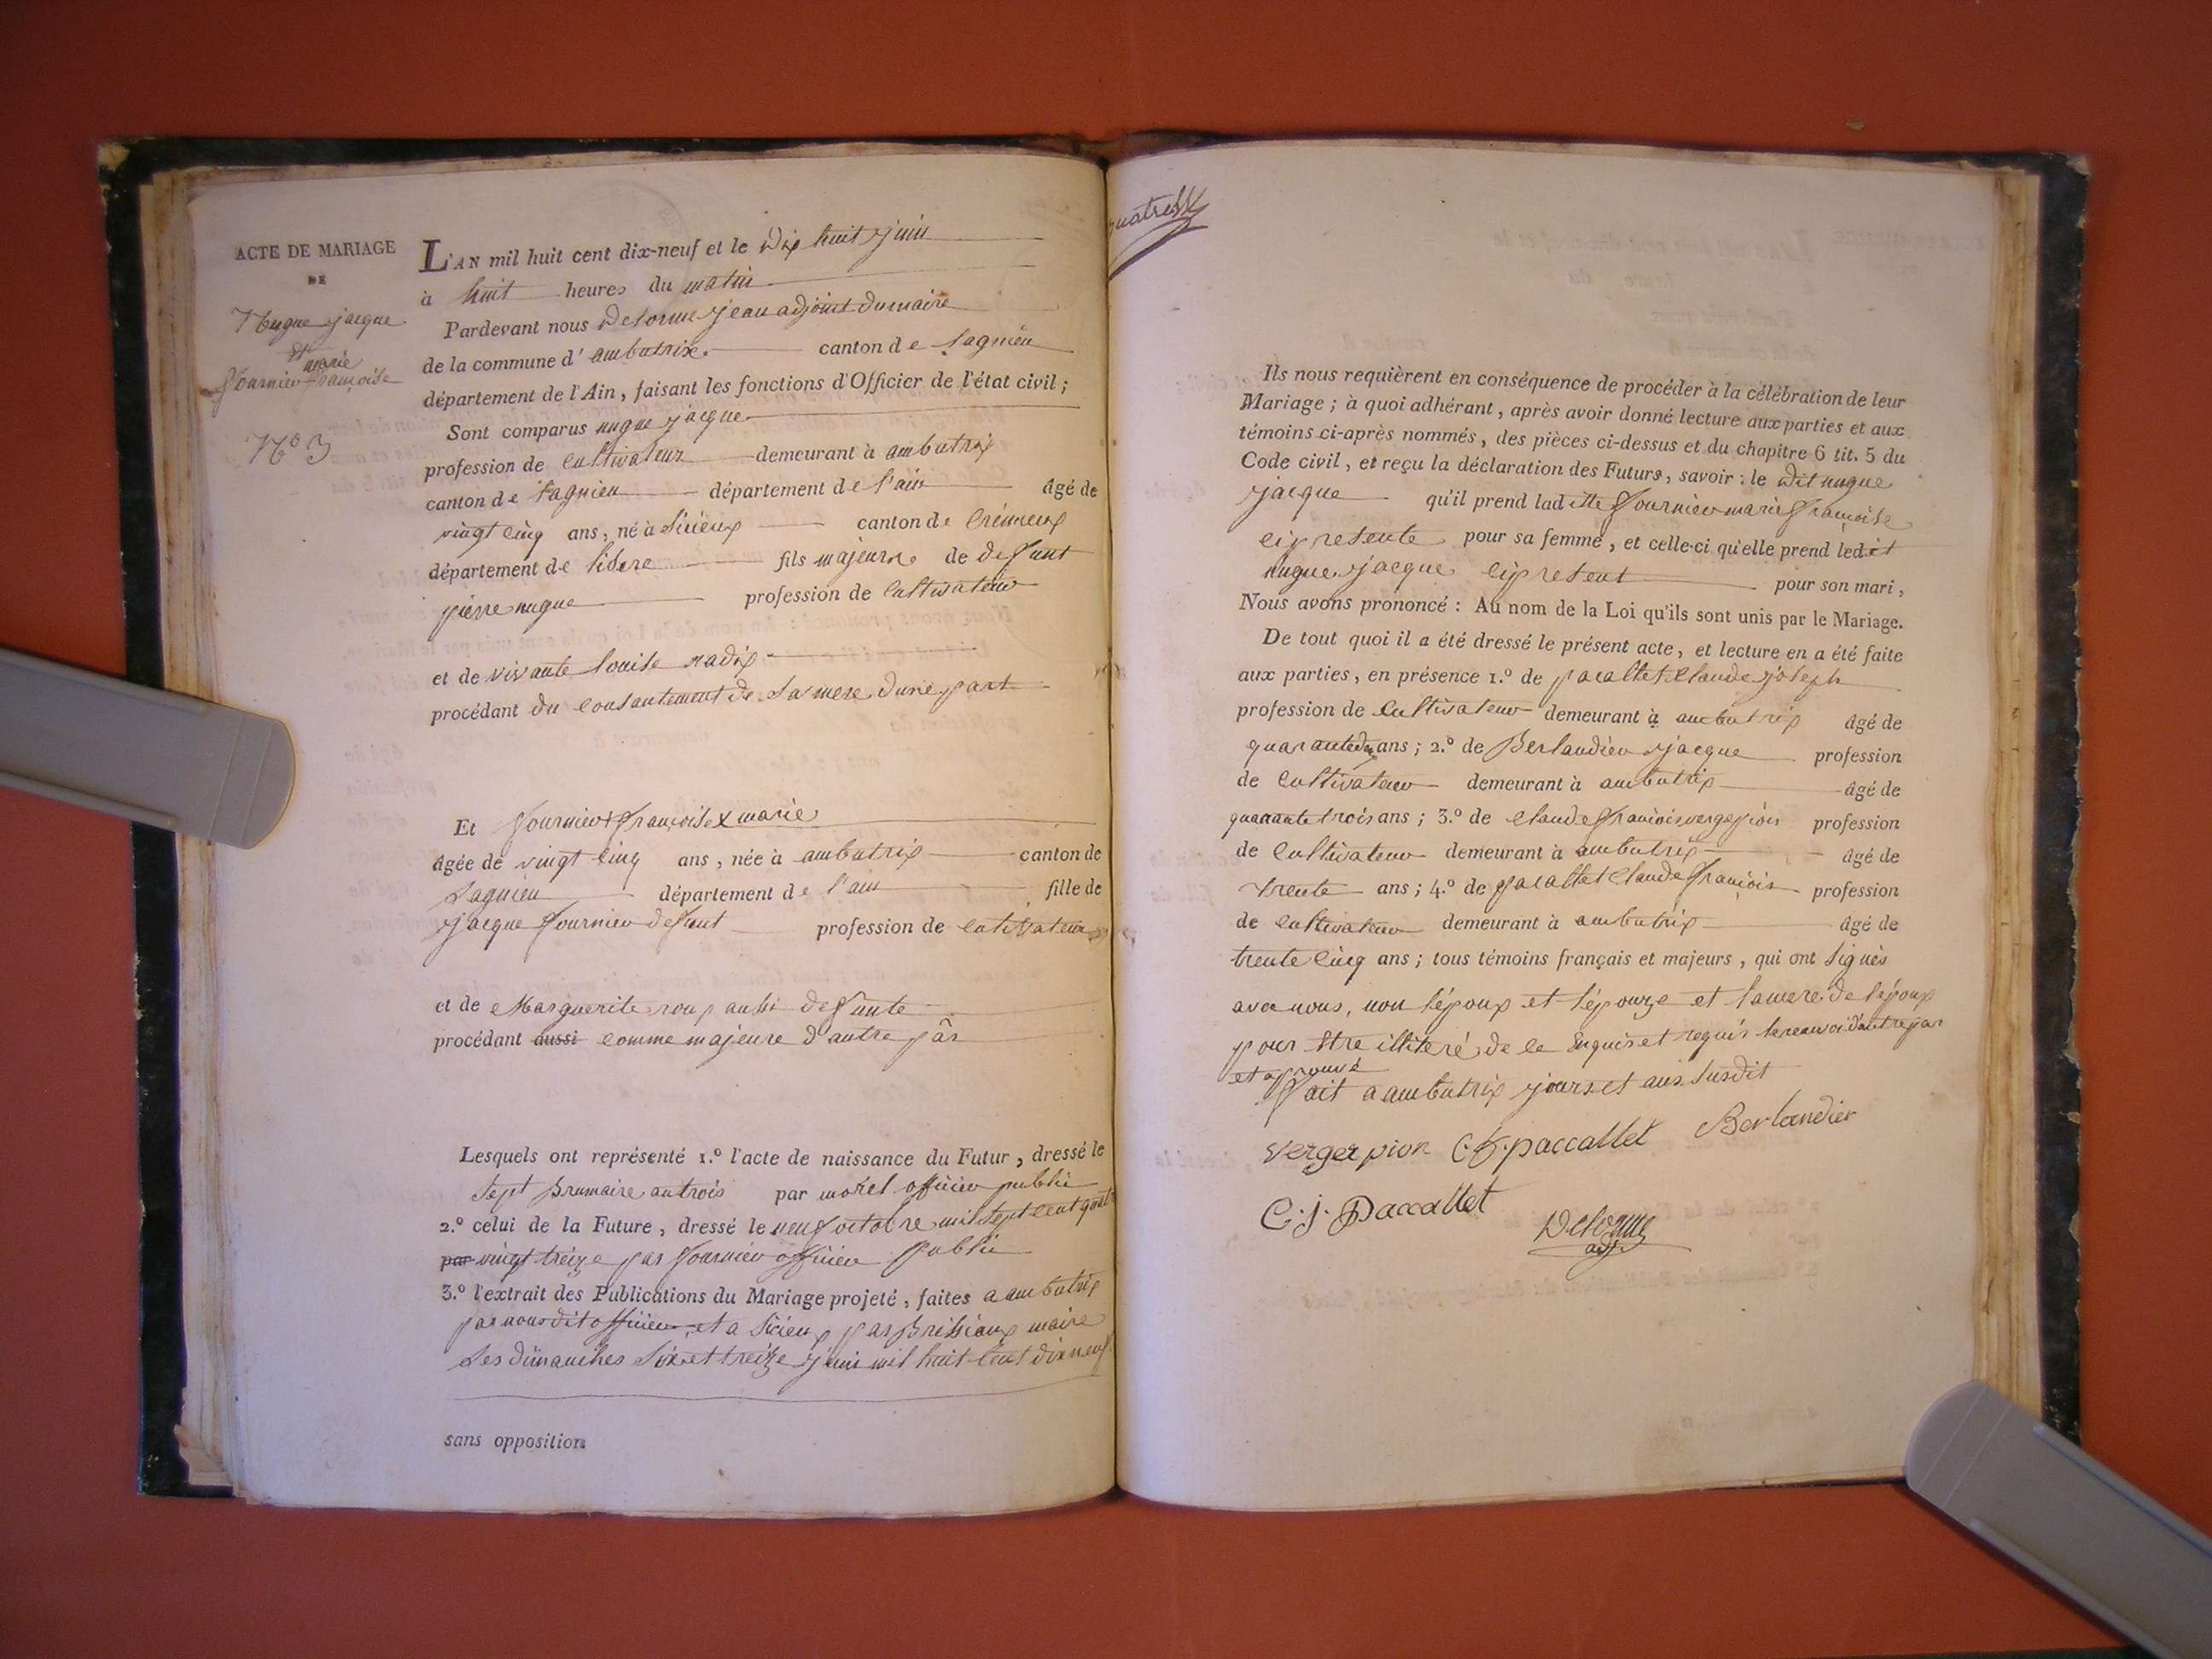 ACTE DE MARIAGE
DE
Nugue jacque
et
marie
fournier françoise
N° 3
L'AN mil huit cent dix-neuf et le dix huit juin
à huit heures du matin
Pardevant nous Delorme jean adjoint du maire
de la commune d' ambutrix canton de Lagnieu
département de l'Ain, faisant les fonctions d'Officier de l'état civil ;
Sont comparus nugue jacque
profession de cultivateur demeurant à ambutrix
canton de Lagnieu département de l'ain âgé de
vingt cinq ans, né à Sicieux canton de Crémieux
département de lisere fils majeur de defunt
pierre nugue profession de cultivateur
et de vivante Louise radix
procédant du consantement de sa mere d'une part
Et fournier françoise x marie
âgée de vingt cinq ans, née à ambutrix canton de
Lagnieu département de l'ain fille de
jacque fournier defunt profession de cutivateur
et de Marguerite roux aussi defunte
procédant aussi comme majeure d'autre par
Lesquels ont représenté 1.º l'acte de naissance du Futur, dressé le
sept Brumaire an trois par morel officier public
2.º celui de la Future, dressé le neuf octobre mil sept cent quat
par vingt treize par fournier officier public
3.º l'extrait des Publications du Mariage projeté, faites a ambutrix
par nous dit officier, et a Sicieux par Brissieux maire
les dimanches six et treize juin mil huit cent dix neuf
sans opposition
Ils nous requièrent en conséquence de procéder à la célébration de leur
Mariage ; à quoi adhérant, après avoir donné lecture aux parties et aux
témoins ci-après nommés, des pièces ci-dessus et du chapitre 6 tit. 5 du
Code civil, et reçu la déclaration des Futurs, savoir : le dit nugue
jacque qu'il prend laditte fournier marie françoise
cy presente pour sa femme, et celle-ci qu'elle prend ledit
nugue jacque cy present pour son mari,
Nous avons prononcé : Au nom de la Loi qu'ils sont unis par le Mariage.
De tout quoi il a été dressé le présent acte, et lecture en a été faite
aux parties, en présence 1.º de pacallet Claude joseph
profession de cultivateur demeurant à ambutrix âgé de
quarante ans ; 2.º de Berlandier jacque profession
de cultivateur demeurant à ambutrix âgé de
quarante trois ans ; 3.º de claude françois vergerpion profession
de cultivateur demeurant à ambutrix âgé de
trente ans ; 4.º de pacallet claude françois profession
de cultivateur demeurant à ambutrix âgé de
trente cinq ans ; tous témoins français et majeurs, qui ont signés
avec nous, non lépoux et lépouze et la mere de lépoux
pour etre illiteré de ce enquis et requis le renvoi d'autre par
et aprouvé
fait a ambutrix jours et ans susdit
verger pion C f paccallet Berlandier
C. j. Paccallet
Delorme
adj